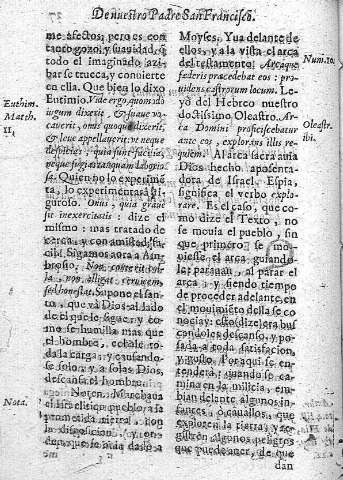 De nuestro Padre San Francisco.
me afectos, pero es con
tanto gozo, y suauidad, q̃
todo el imaginado azi
bar se trueca, y conuierte
en ella. Que bien lo dixo
Eutimio. Vide ergo, quomodo
iugum dixerit, & suaue vo-
cauerit, onus quoque dixerit,
& leue appellauerit: vt neque
despicias, quia sint facilia,
neque fugias tanquam laborio
sa. Quien no lo experimẽ
ta, lo experimentarà ri-
guroso. Onus, quia graue
sit inexercitatis: dize el
mismo: mas tratado de
cerca, y con amistad, fa-
cil. Sigamos aora a Am-
brosio. Non
sed honestat. Supone el san-
to, que và Dios al lado
de el que le sigue; y co-
mo se humilla mas que
el hombre, echale to-
da la carga; y causando-
se solo, y a solas Dios,
descansa el hombre.
Noten. Marchaua
el Israelitico pueblo, a la
prometida tierra, con
la disposicion, y or-
den, que se auia dado a
Euthim.
Match.
11,
Nota.
Moyses. Yua delante de
ellos, y a la vista el arca
del testamento. Arcaque
fœderis præcedebat eos: pro-
uidens castrorum locum. Le-
yò del Hebreo nuestro
doctissimo Oleastro. Ar
ca Domini proficiscebatur
ante eos, explorans illis re-
quiem. Al arca sacra auia
Dios hecho aposenta-
dora de Israel. Espia,
significa el verbo explo-
rare. Es el caso, que co-
mo dize el Texto, no
se mouia el pueblo, sin
que primero se mo-
uiesse el arca guiando-
le: parauan, al parar el
arca; y siendo tiempo
de proceder adelante, en
el mouimiẽto della se co
nocia; esto dize) era bus
candoles descanso, y po-
sada, a toda satisfacion,
y gusto. Por aqui se en-
tenderà: quando se ca-
mina en la milicia, em-
bian delante algunos in-
fantes, ò cauallos, que
exploren la tierra; y re-
gistren algunos peligros
que puede auer, de que
dan
Num. 10.
Oleast.
ibi.